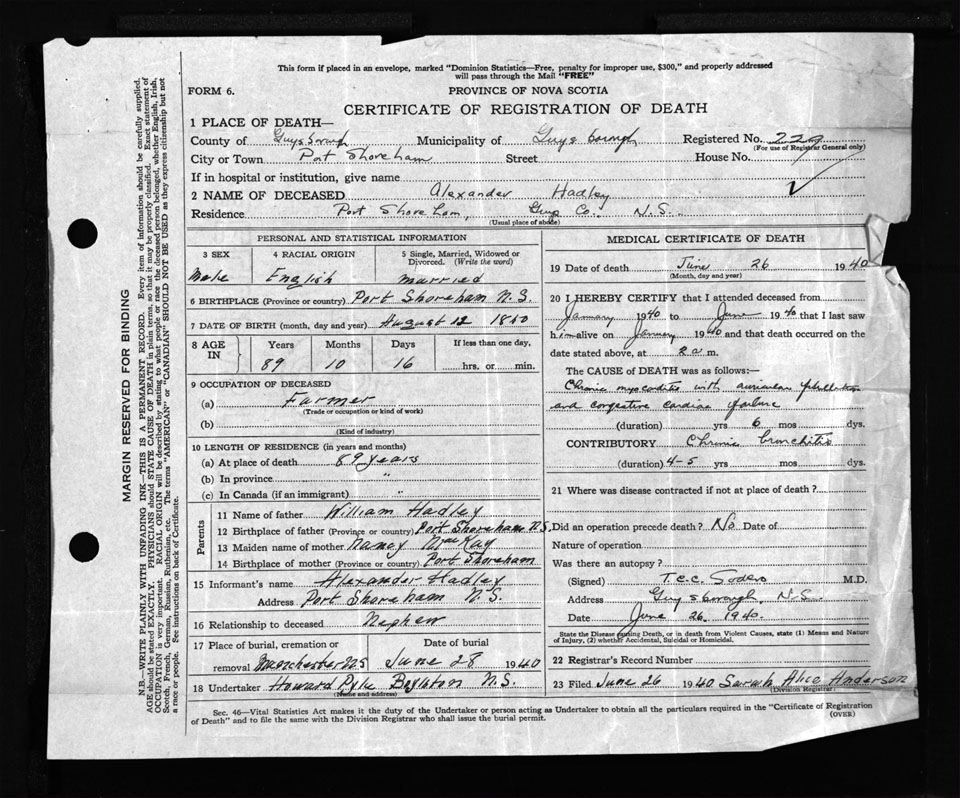 This form if placed in an envelope, marked "Dominion Statistics—Free, penalty for improper use, $300," and properly addressed
will pass through the Mail "FREE"
FORM 6.
PROVINCE OF NOVA SCOTIA
CERTIFICATE OF REGISTRATION OF DEATH
1 PLACE OF DEATH—
County of Guysborough Municipality of Guysborough Registered No. 229
(For use of Registrar General only)
City or Town Port Shoreham Street House No.
If in hospital or institution, give name
2 NAME OF DECEASED Alexander Hadley
Residence Port Shoreham, Guys Co. N.S.
(Usual place of abode)
PERSONAL AND STATISTICAL INFORMATION
3 SEX 4 RACIAL ORIGIN 5 Single, Married, Widowed or
Divorced. (Write the word)
Male English married
6 BIRTHPLACE (Province or country) Port Shoreham N.S.
7 DATE OF BIRTH (month, day and year) August 12 1850
8 AGE IN Years Months Days If less than one day,
89 10 16 hrs. or min.
9 OCCUPATION OF DECEASED
(a) Farmer
(Trade or occupation or kind of work)
(b)
(Kind of industry)
10 LENGTH OF RESIDENCE (in years and months)
(a) At place of death 89 years
(b) In province "
(c) In Canada (if an immigrant)
Parents
11 Name of father William Hadley
12 Birthplace of father (Province or country) Port Shoreham N.S.
13 Maiden name of mother Nancy McKay
14 Birthplace of mother (Province or country) Port Shoreham
15 Informant's name Alexander Hadley
Address Port Shoreham N.S.
16 Relationship to deceased Nephew
17 Place of burial, cremation or Date of burial
removal Manchester NS June 28 1940
18 Undertaker Howard Pyle Boylston N.S.
(Name and address)
MEDICAL CERTIFICATE OF DEATH
19 Date of death June 26 1940
(Month, day and year)
20 I HEREBY CERTIFY that I attended deceased from
January 1940 to June 1940 that I last saw
him alive on January 1940 and that death occurred on the
date stated above, at 2 a m.
The CAUSE of DEATH was as follows:—
Chronic myocarditis with auricular fibrillation
and congestive cardiac failure
(duration) yrs 6 mos. dys.
CONTRIBUTORY Chronic bronchitis
(duration) 4-5 yrs mos. dys.
21 Where was disease contracted if not at place of death?
Did an operation precede death? No Date of
Nature of operation
Was there an autopsy?
(Signed) T.C.C. Sodero M.D.
Address Guysborough, N.S.
Date June 26 1940.
State the Disease causing Death, or in death from Violent Causes, state (1) Means and Nature
of Injury, (2) whether Accidental, Suicidal or Homicidal.
22 Registrar's Record Number
23 Filed June 26 1940 Sarah Alice Anderson
(Division Registrar)
Sec. 46—Vital Statistics Act makes it the duty of the Undertaker or person acting as Undertaker to obtain all the particulars required in the "Certificate of Registration
of Death" and to file the same with the Division Registrar who shall issue the burial permit. (OVER)
MARGIN RESERVED FOR BINDING
N.B.—WRITE PLAINLY WITH UNFADING INK—THIS IS A PERMANENT RECORD. Every item of information should be carefully supplied.
AGE should be stated EXACTLY. PHYSICIANS should STATE CAUSE OF DEATH in plain terms, so that it may be properly classified. Exact statement of
OCCUPATION is very important. RACIAL ORIGIN will be described by stating to what people or race the deceased person belonged, whether English, Irish,
Scotch, French, German, Russian, Ruthenian, etc. The terms "AMERICAN" or "CANADIAN" SHOULD NOT BE USED as they express citizenship but not
a race or people. See instructions on back of Certificate.